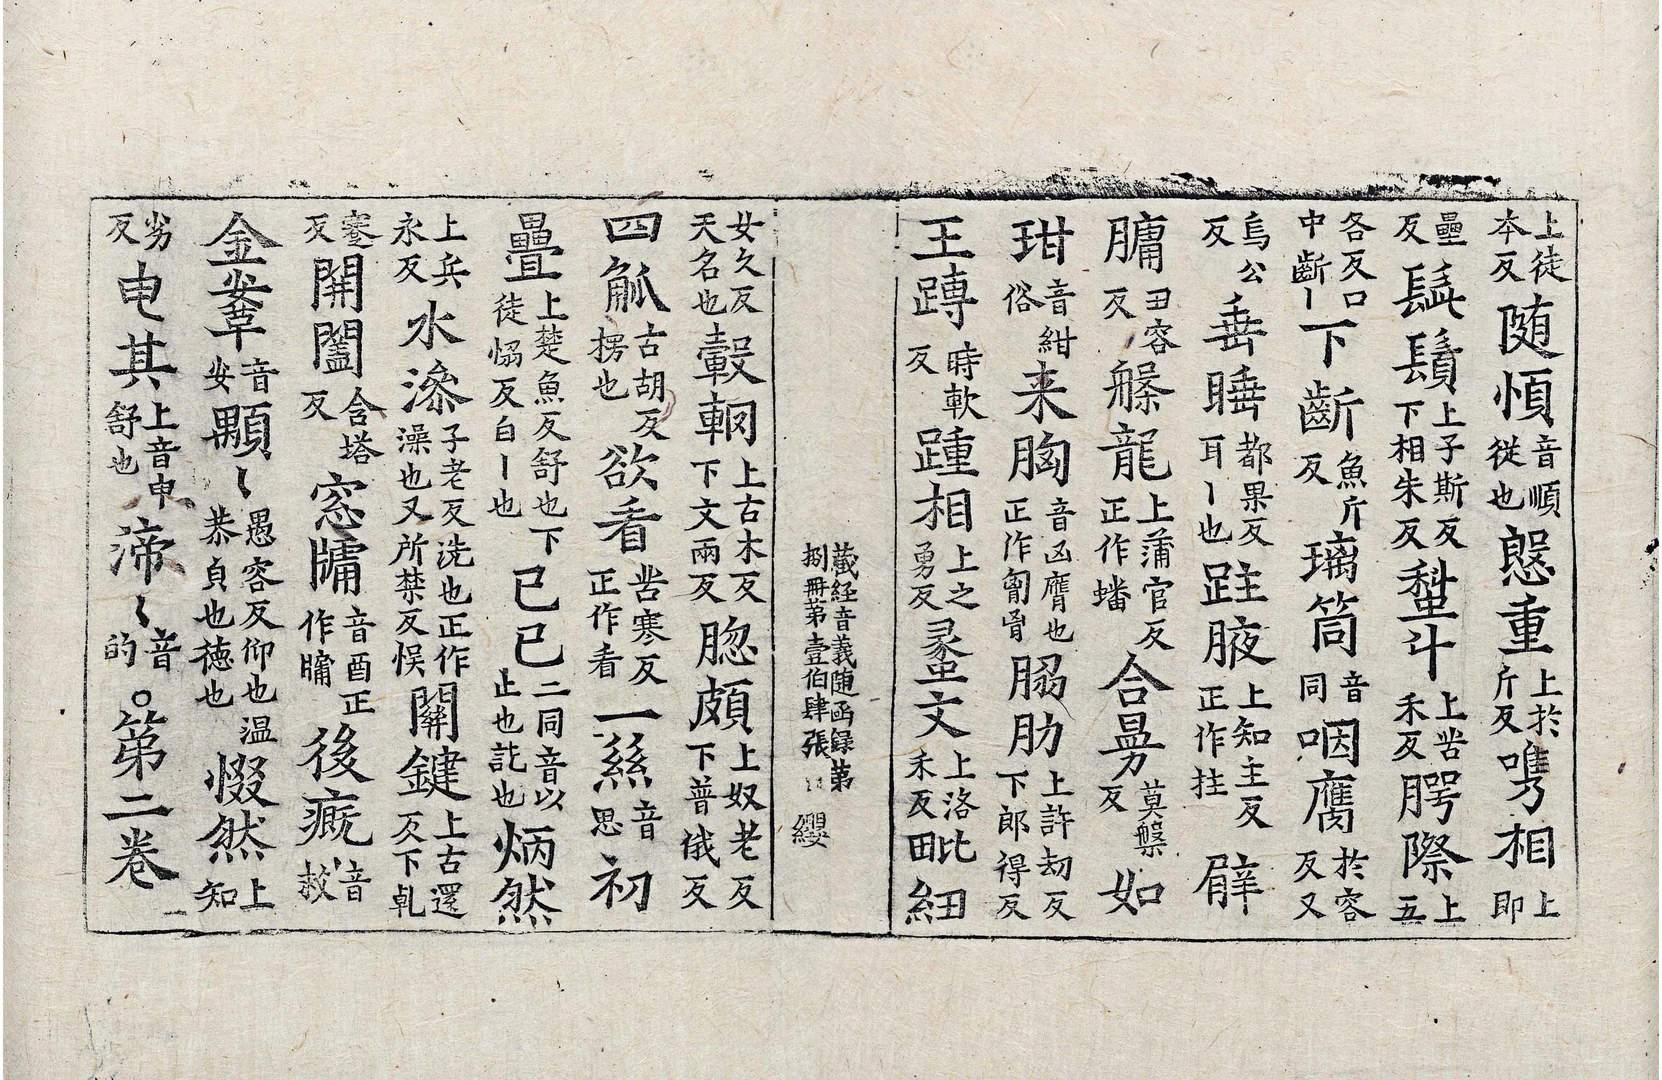 上徒本反随㥧音順從也慇重上於斤反㗱相上即
壘反髭鬚上子斯反下相朱反犁斗上苦禾反腭際上五
各反口中齗丨下齗魚斤反璃筒音同咽膺於容反又
烏公反垂睡都果反耳丨也跓腋上知主反正作拄臂
膅丑容反䑺龍上蒲官反正作蟠合㝃莫槃反如
玵音紺俗来胸音凶膺也正作匈骨脇肋上許劫反下郎得反
王蹲時軟反踵相上之勇反蠡文上洛禾反毗紐
藏經音義随函録第
捌冊第壹伯肆張 纓
女久反天名也轂輞上古木反下文兩反腦頗上奴老反下普俄反
四觚古胡反楞也欲看苦寒反正作看一絲音思初
疊上楚魚反舒也下徒恊反白丨也已已二同音以止也訖也炳然
上兵永反水㵕子老反洗也正作澡也又所禁反悮關鍵上古還反下乹
蹇反開闔含塔反窓牗音酉正作牖後瘷音救
金䇯音安顒〻愚容反仰也温恭貞也徳也惙然上知
劣反电其上音申舒也渧〻音的。第二卷